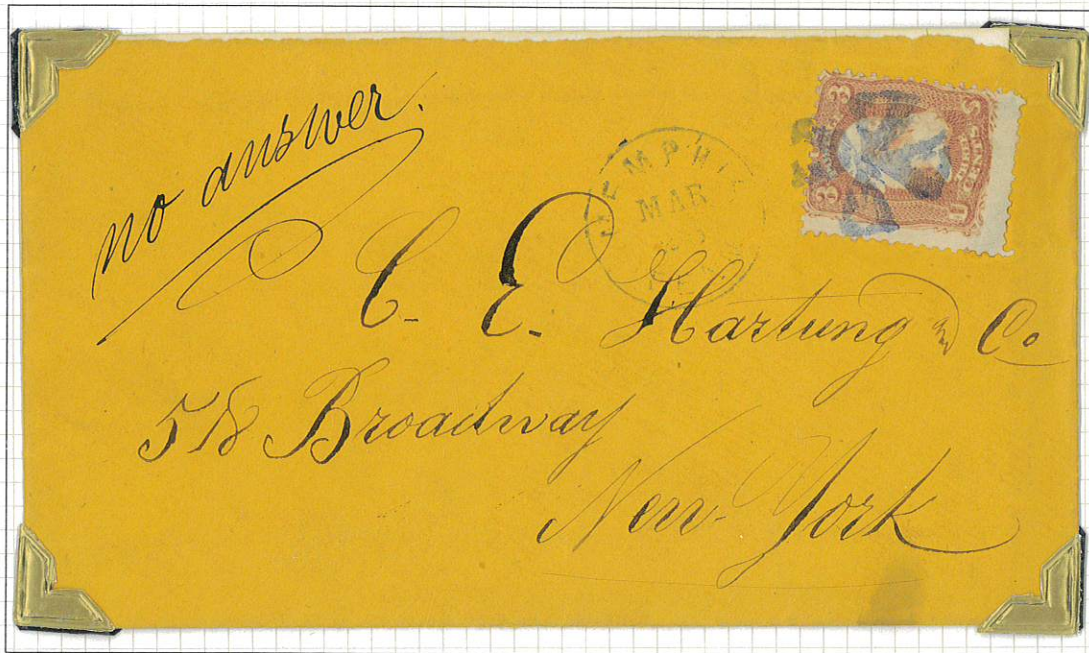 no answer.
MEMPHIS
MAR
3 3
C. E. Hartung & Co
518 Broadway
New-York